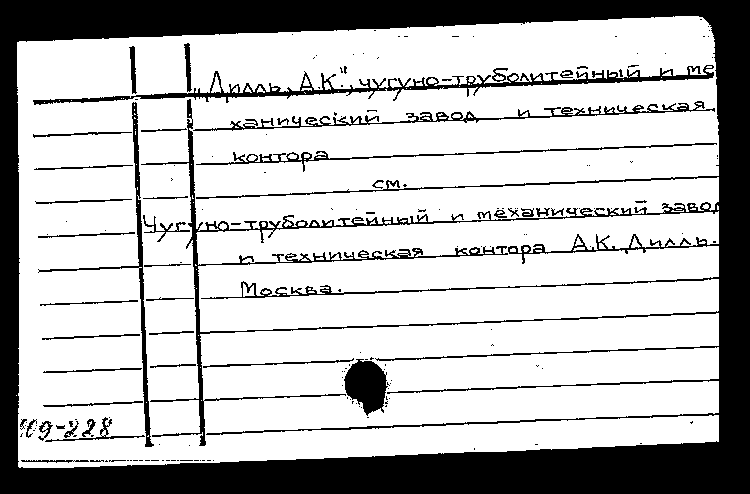 „Дилль, А.К.", чугуно-труболитейный и ме
ханический завод и техническая
контора
см.
Чугуно-труболитейный и механический завод
и техническая контора А.К. Дилль.
Москва.
109-228